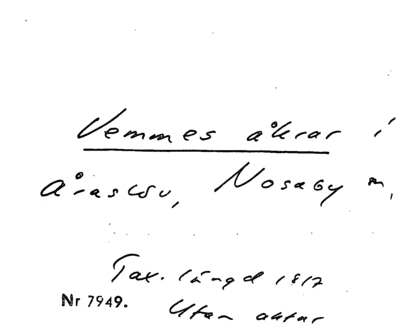 Vemmes åkrar i
Åraslöv, Nosaby sn,
Tax. längd 1817
Nr 7949. Utan aktnr